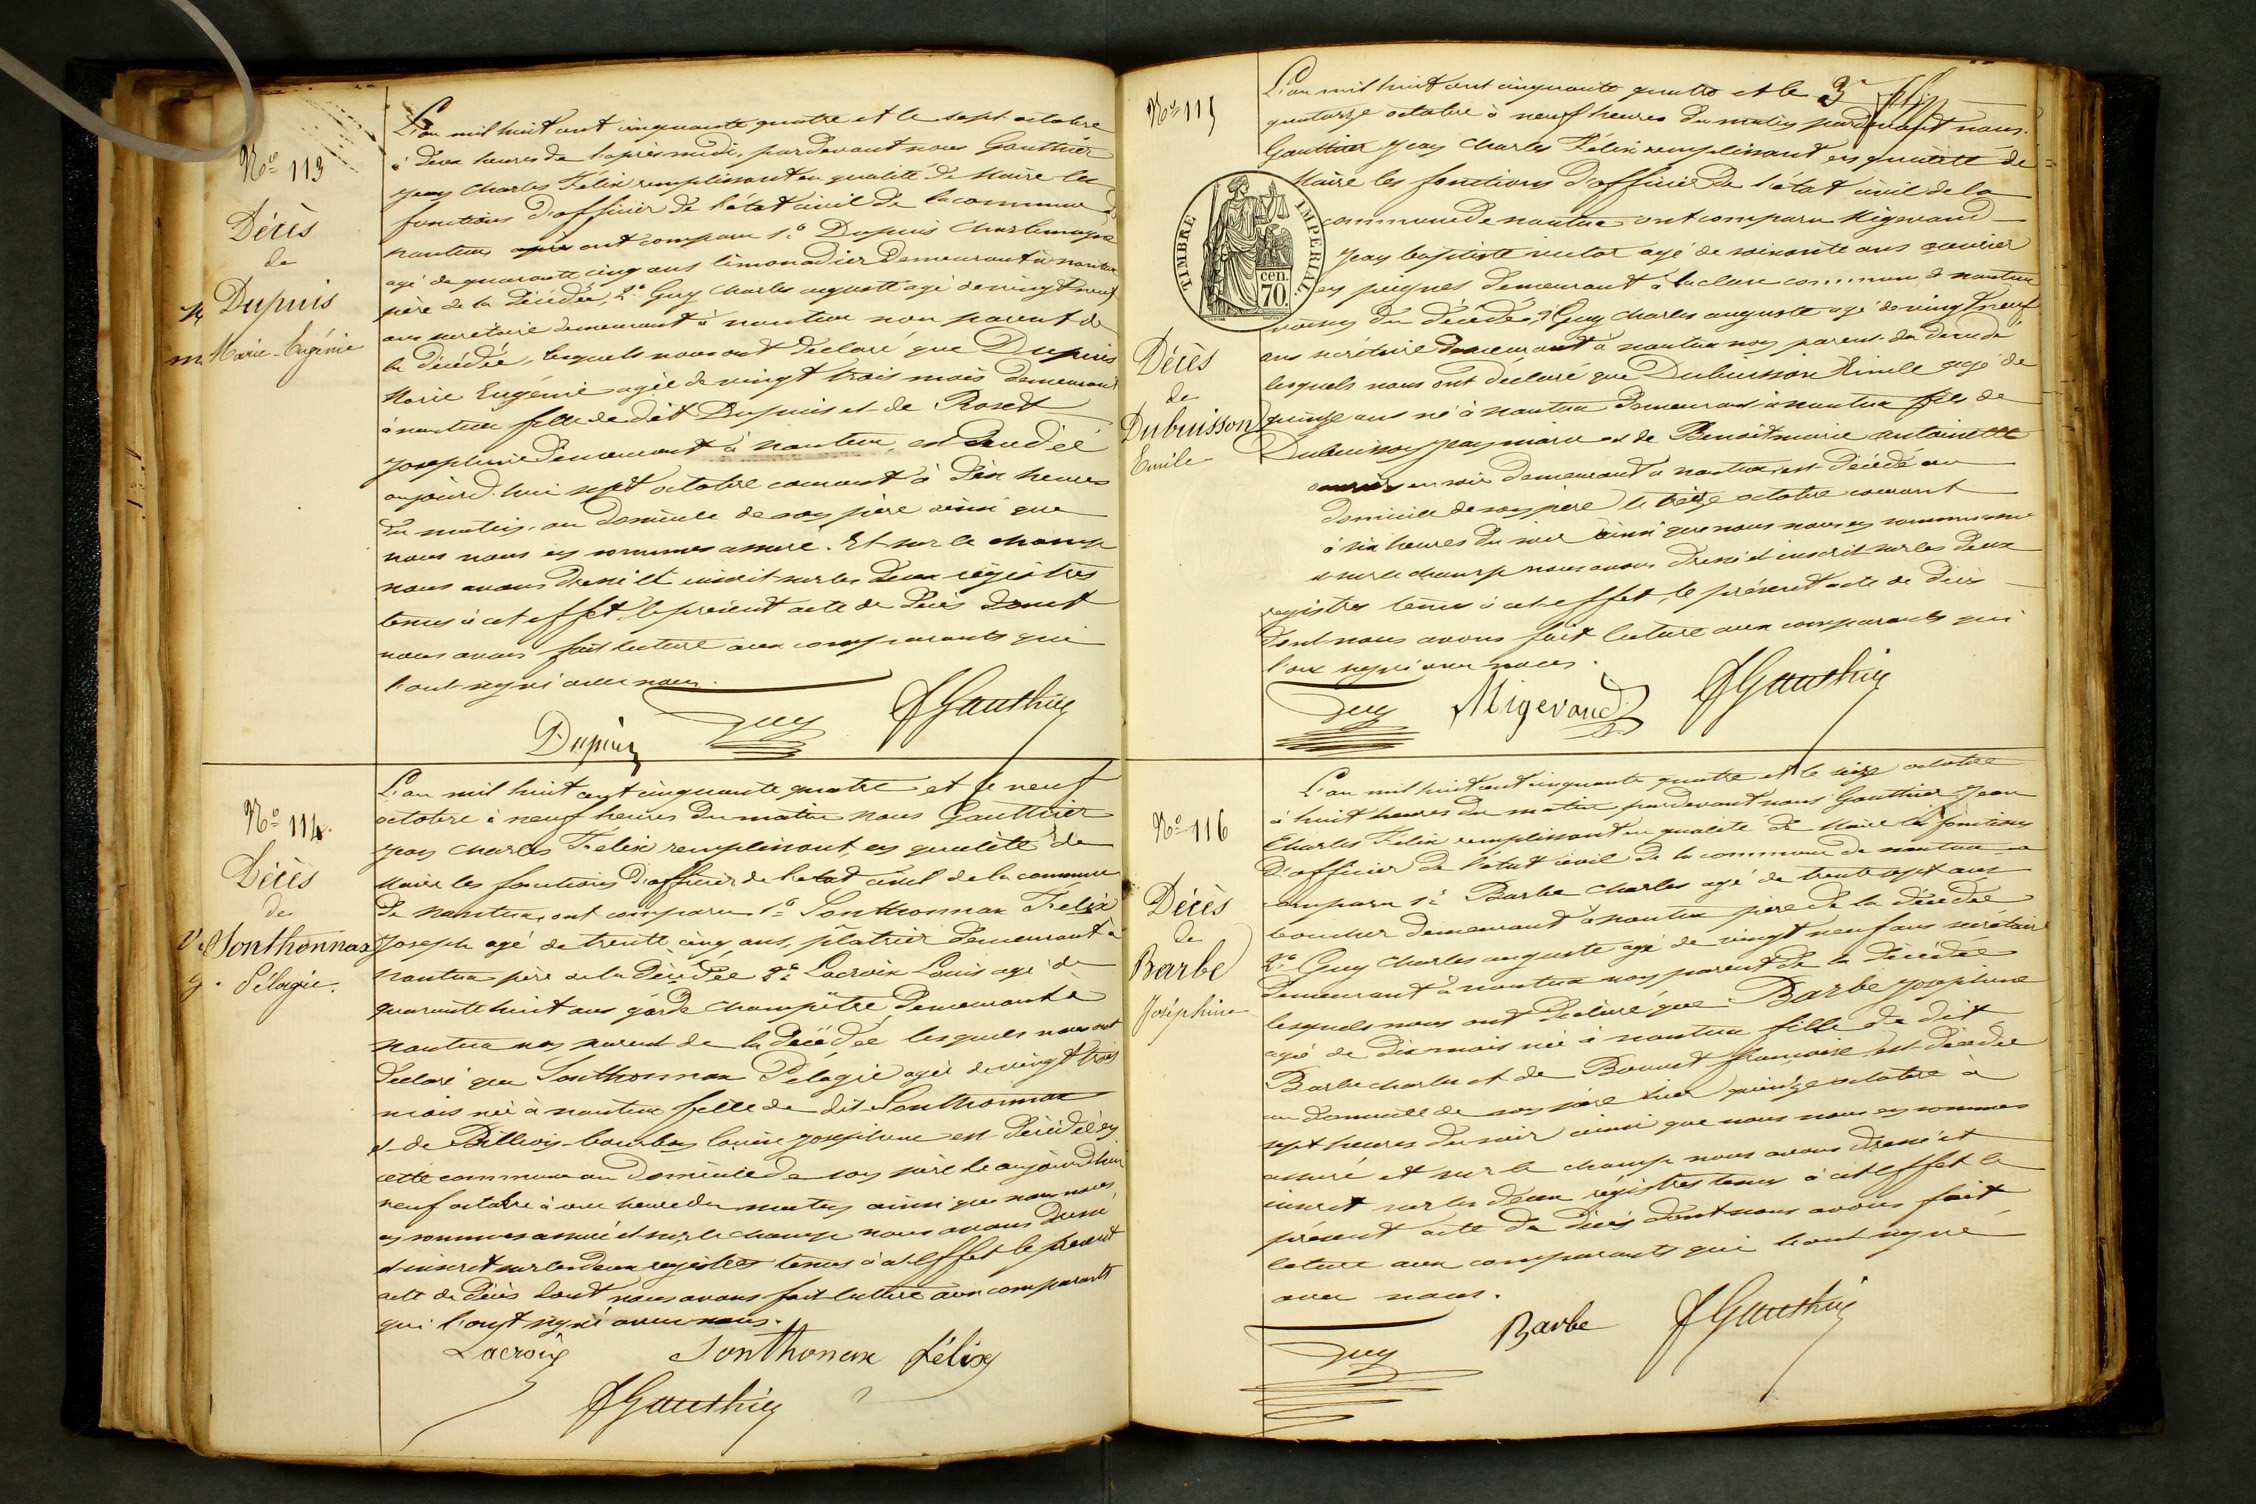 No 113
Décès
de
Dupuis
Marie-Eugénie
L'an mil huit cent cinquante quatre et le sept octobre
à deux heures de l'après midi, pardevant nous Gauthier
jean Charles Félix remplissant en qualité de Maire les
fonctions d'officier de l'état civil de la commune de
nantua ont comparu 1o Dupuis Charlemagne
agé de quarante cinq ans limonadier demeurant à nantua
père de la décédée, 2o Guy Charles auguste agé de vingt neuf
ans secrétaire demeurant à nantua non parent de
la décédée, lesquels nous ont déclaré que Dupuis
Marie Eugénie agée de vingt trois mois demeurant
à nantua fille de dit Dupuis et de Roset
Josephine demeurant à nantua, est décédée
aujourd'hui sept octobre courant à dix heures
du matin, au domicile de son père ainsi que
nous nous en sommes assuré. Et sur le champ
nous avons dressé et inscrit sur les deux régistres
tenus à cet effet le présent acte de décès dont
nous avons fait lecture aux comparants qui
l'ont signé avec nous.
Dupuis Guy JGauthier
No 114.
Décès
de
Sonthonnax
Pélagie.
L'an mil huit cent cinquante quatre et le neuf
octobre à neuf heures du matin nous Gauthier
jean Charles Félix remplissant en qualité de
Maire les fonctions d'officier de l'état civil de la commune
de nantua, ont comparu 1o Sonthonnax Felix
Joseph agé de trente cinq ans, plâtrier demeurant à
nantua père de la décédée 2o Lacroix Louis agé de
quarante huit ans garde champêtre, demeurant à
nantua non parent de la décédée lesquels nous ont
declaré que Sonthonnax Pélagie agée de vingt trois
mois née à nantua fille de dit Sonthonnax
et de josephine est décédée en
cette commune au domicile de son père le aujourd'hui
neuf octobre à une heure du matin ainsi que nous nous
en sommes assuré et sur le champ nous avons dressé
et inscrit sur les deux registres tenus à cet effet le présent
acte de décès dont nous avons fait lecture aux comparants
qui l'ont signé avec nous.
Lacroix Sonthonax félix
JGauthier
No 115
TIMBRE IMPERIAL.
cen.
70.
Décès
de
Dubuisson
Emile
L'an mil huit cent cinquante quatre et le
quatorze octobre à neuf heures du matin pardevant nous
Gauthier jean Charles Félix remplissant en qualité de
Maire les fonctions d'officier de l'état civil de la
commune de nantua ont comparu Migerand
jean baptiste victor agé de soixante ans ouvrier
en peignes demeurant à la cluse commune de nantua
voisin du décédé, 2o Guy Charles auguste agé de vingt neuf
ans secrétaire demeurant à nantua non parent du décédé
lesquels nous ont déclaré que Dubuisson Emile agé de
quinze ans né à nantua demeurant à nantua fils de
Dubuisson jean marie et de Benoit marie antoinette
en soie demeurant à nantua est décédé au
domicile de son père le treize octobre courant
à six heures du soir ainsi que nous nous en sommes assuré
et sur le champ nous avons dressé et inscrit sur les deux
registres tenus à cet effet, le présent acte de décès
dont nous avons fait lecture aux comparants qui
l'ont signé avec nous.
Guy Migerand JGauthier
No 116
Décès
de
Barbe
Joséphine
L'an mil huit cent cinquante quatre et le seize octobre
à huit heures du matin pardevant nous Gauthier Jean
Charles Felix remplissant en qualité de Maire les fonctions
d'officier de l'état civil de la commune de nantua a
comparu 1o Barbe Charles agé de trente sept ans
boucher demeurant à nantua père de la décédée
2o Guy Charles auguste agé de vingt neuf ans secrétaire
demeurant à nantua non parent de la décédée
lesquels nous ont déclaré que Barbe josephine
agé de dix mois née à nantua fille de dit
Barbe charles et de françoise est décédée
au domicile de son père hier quinze octobre à
sept heures du soir ainsi que nous nous en sommes
assuré et sur le champ nous avons dressé et
inscrit sur les deux régistres tenus à cet effet le
présent acte de décès dont nous avons fait
lecture aux comparants qui l'ont signé
avec nous.
Guy Barbe JGauthier